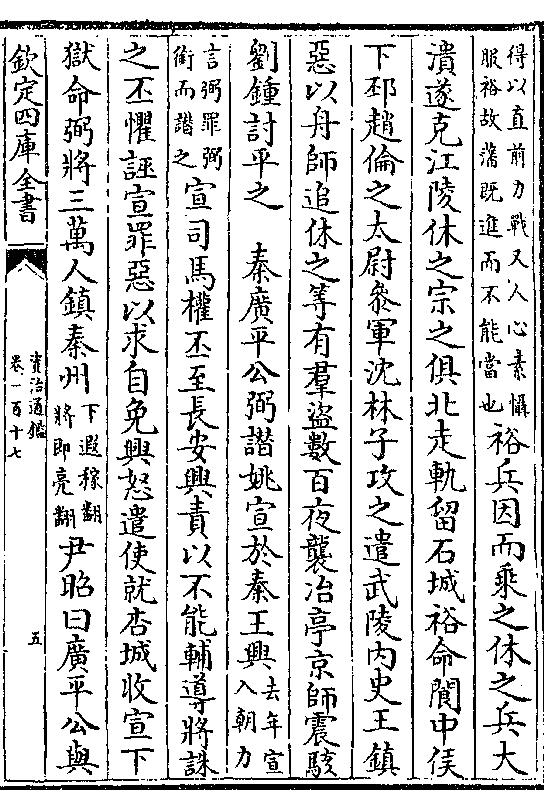 得以直前力戰又人心素懾
服裕故藩既進而不能當也
裕兵因而乘之休之兵大
潰遂克江陵休之宗之俱北走軌留石城裕命閬中侯
下邳趙倫之太尉叅軍沈林子攻之遣武陵内史王鎮
惡以舟師追休之等有羣盜數百夜襲冶亭京師震駭
劉鍾討平之　秦廣平公弼譖姚宣於秦王興
去年宣
入朝力
言弼罪弼
銜而譖之
宣司馬權丕至長安興責以不能輔導將誅
之丕懼誣宣罪惡以求自免興怒遣使就杏城收宣下
獄命弼將三萬人鎮秦州
下遐稼翻
將即亮翻
尹昭曰廣平公與
欽定四庫全書
資治通鑑
卷一百十七
五